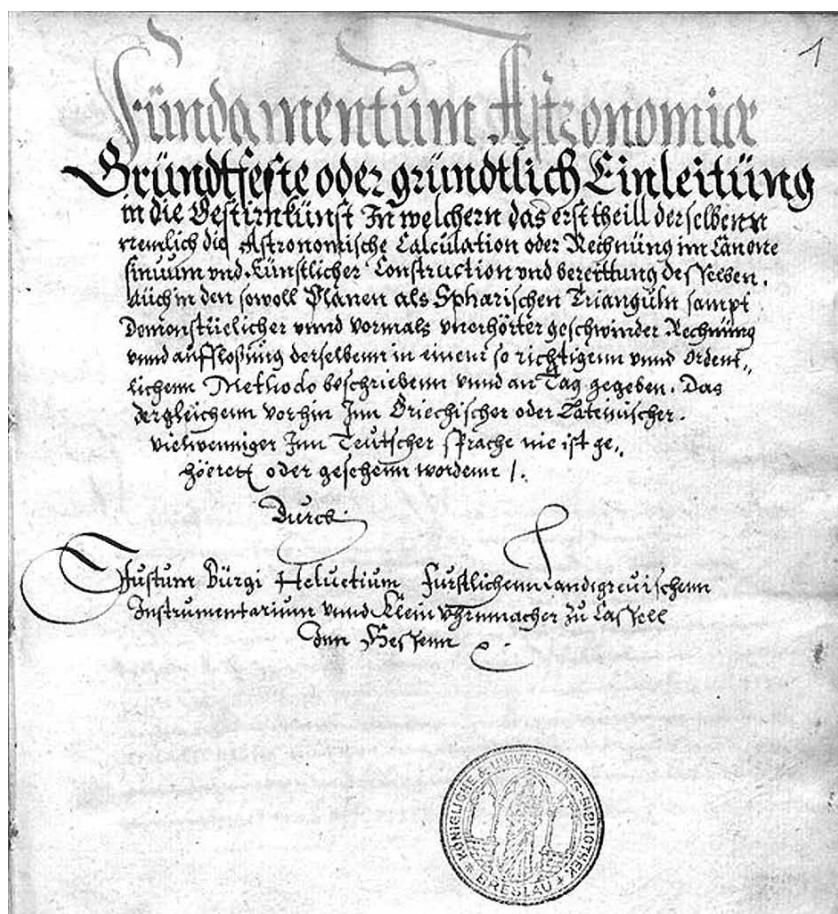 1
Fündamentum Astronomiæ
Gründtfeste oder gründtlich Einleitüng
in die Gestirnkünst In welchern das erst theill derselbenn
nemlich die Astronomische Calculation oder Rechnüng im Canone
sinuum vnd künstlicher Construction vnd bereittung desselben.
Aüch in den sowoll Planen als Spharischen Trianguln sampt
vnnd vormals vnerhörter geschwinder Rechnüng
vnnd aufflosüng derselbenn in einem so richtigenn vnnd ordent„
lichenn Methodo beschriebenn vnnd an Tag gegeben. Das
dergleichenn vorhin Inn Griechischer oder Lateinischer.
vielwenniger Inn Teutscher sprache nie ist ge„
höeret oder gesehenn wordenn /.
Durch
Justum Bürgi Helvetium furstlichenn Landgrevischenn
Instrumentarium vnnd Klein vhrnmacher zu Cassell
Inn Hessenn
KÖNIGLICHE & UNIVERSITÄTS-BIBLIOTHEK
BRESLAU